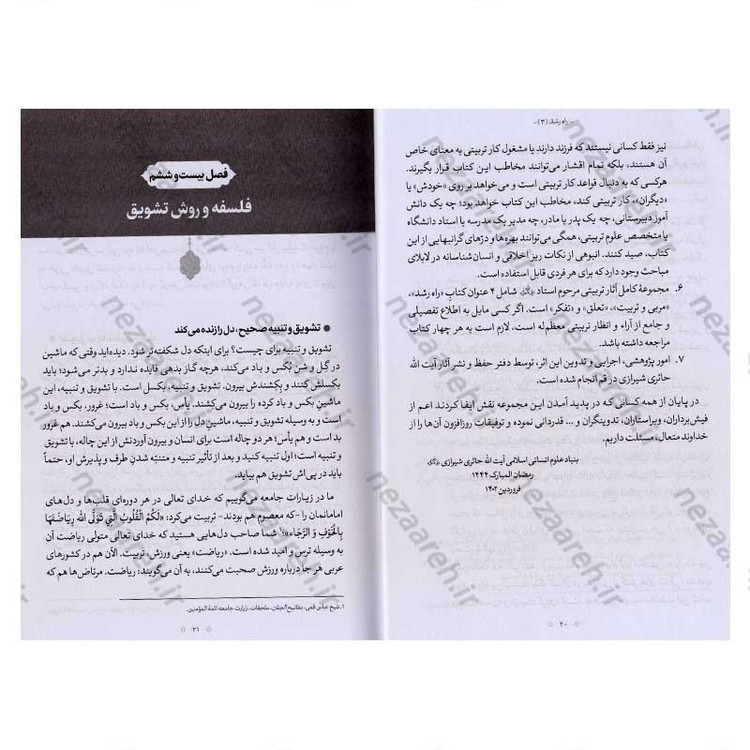 - راه رشد (۳) -
نیز فقط کسانی نیستند که فرزند دارند یا مشغول کار تربیتی به معنای خاص
آن هستند، بلکه تمام اقشار می‌توانند مخاطب این کتاب قرار بگیرند.
هرکسی که به دنبال قواعد کار تربیتی است و می‌خواهد بر روی «خودش» یا
«دیگران»، کار تربیتی کند، مخاطب این کتاب خواهد بود؛ چه یک دانش
آموز دبیرستانی، چه یک پدر یا مادر، چه مدیر یک مدرسه یا استاد دانشگاه
یا متخصص علوم تربیتی، همگی می‌توانند بهره‌ها و دُرّهای گرانبهایی از این
کتاب، صید کنند. انبوهی از نکات ریز اخلاقی و انسان‌شناسانه در لابلای
مباحث وجود دارد که برای هر فردی قابل استفاده است.
۶. مجموعهٔ کامل آثار تربیتی مرحوم استاد شامل ۴ عنوان کتابِ «راه رشد»،
«مربی و تربیت»، «تعلق» و «تفکر» است. اگر کسی مایل به اطلاع تفصیلی
و جامع از آراء و انظار تربیتی معظم‌له است، لازم است به هر چهار کتاب
مراجعه داشته باشد.
۷. امور پژوهشی، اجرایی و تدوین این اثر، توسط دفتر حفظ و نشر آثار آیت الله
حائری شیرازی در قم انجام شده است.
در پایان از همه کسانی که در پدید آمدن این مجموعه نقش ایفا کردند اعم از
فیش‌برداران، ویراستاران، تدوینگران و ... قدردانی نموده و توفیقات روزافزون آن‌ها را از
خداوند متعال، مسئلت داریم.
بنیاد علوم انسانی اسلامی آیت الله حائری شیرازی
رمضان المبارک ۱۴۴۴
فروردین ۱۴۰۲
۲۰
فصل بیست و ششم
فلسفه و روش تشویق
● تشویق و تنبیه صحیح، دل را زنده می‌کند
تشویق و تنبیه برای چیست؟ برای اینکه دل شکفته‌تر شود. دیده‌اید وقتی که ماشین
در گِل و شن بُکس و باد می‌کند، هرچه گاز بدهی فایده ندارد و بدتر می‌شود؛ باید
بکسلش کنند و بِکِشندش بیرون. تشویق و تنبیه، بکسل است. با تشویق و تنبیه، این
ماشینِ بکس و باد کرده را بیرون می‌کشند. یأس، بکس و باد است؛ غرور، بکس و باد
است و به وسیله تشویق و تنبیه، ماشینِ دل را از این بکس و باد بیرون می‌کشند. هم غرور
بد است و هم یأس؛ هر دو چاله است برای انسان و بیرون آوردنش از این چاله، با تشویق
و تنبیه است؛ اول تنبیه کنید و بعد از تأثیر تنبیه و متنبّه شدن طرف و پذیرش او، حتماً
باید در پی‌اش تشویق هم بیاید.
ما در زیارات جامعه می‌گوییم که خدای تعالی در هر دوره‌ای قلب‌ها و دل‌های
امامانمان را -که معصوم هم بودند- تربیت می‌کرد: «لَکُمُ الْقُلُوبُ الَّتِي تَوَلَّى اللهُ رِيَاضَتَهَا
بِالْخَوْفِ وَ الرَّجَاءِ»؛۱ شما صاحب دل‌هایی هستید که خدای تعالی متولی ریاضت آن
به وسیله ترس و امید شده است. «ریاضت» یعنی ورزش، تربیت. الآن هم در کشورهای
عربی هر جا درباره ورزش صحبت می‌کنند، به آن می‌گویند؛ ریاضت. مرتاض‌ها هم که
۱. شیخ عباس قمی، مفاتیح الجنان، ملحقات، زیارت جامعه ائمة المؤمنین.
۲۱
nezaareh.ir